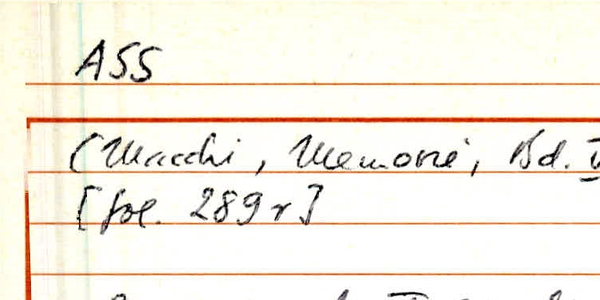 ASS
(Macchi, Memorie, Bd.
[fol. 289r]